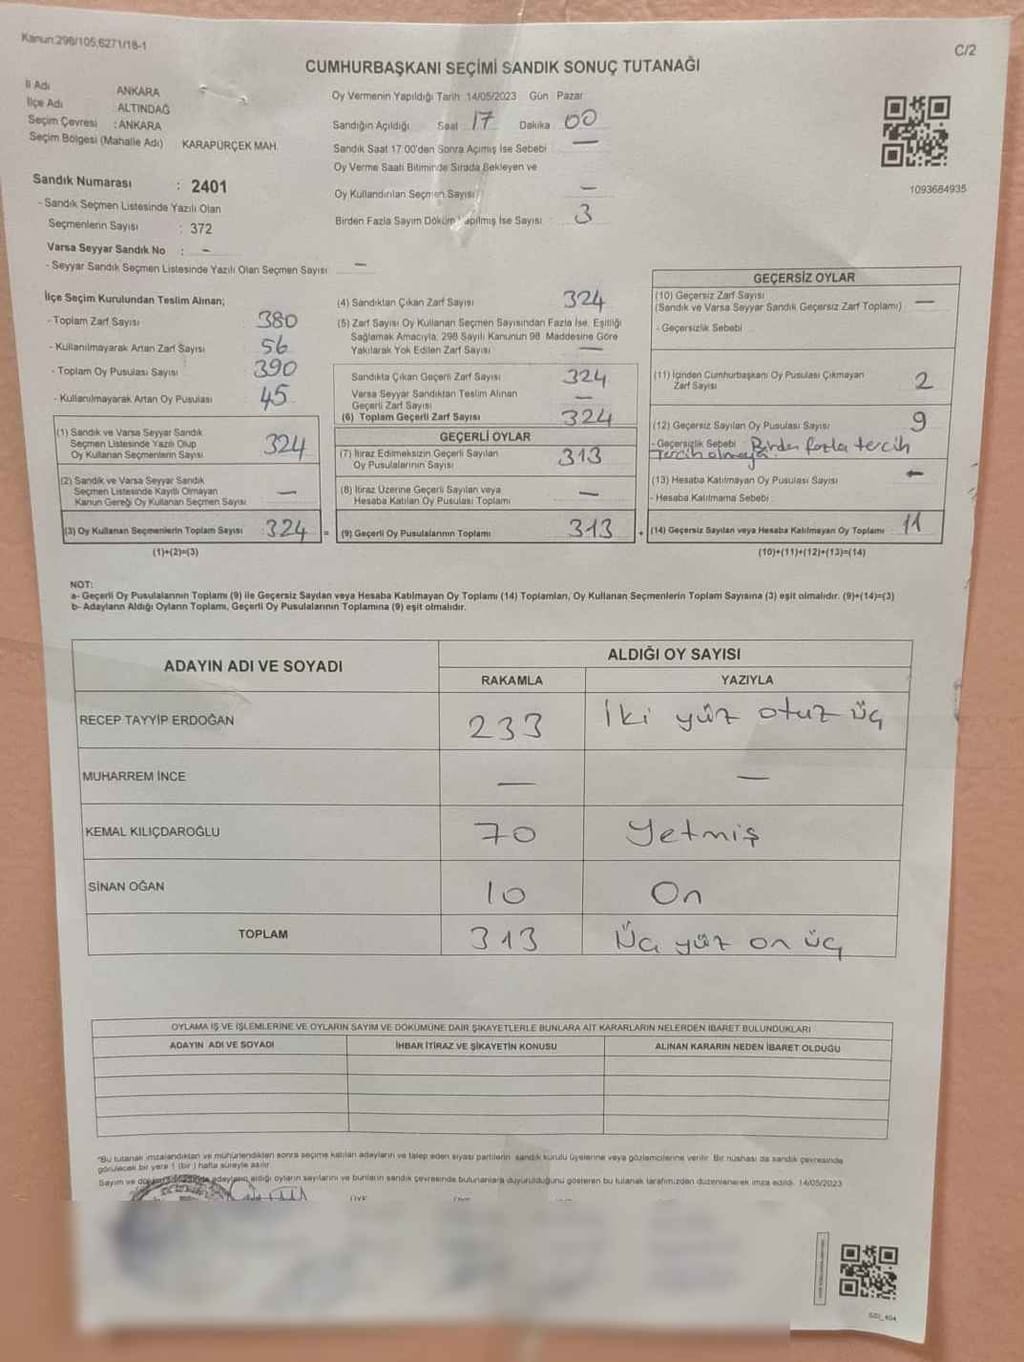 Kanun:298/105,6271/18-1
C/2
CUMHURBAŞKANI SEÇİMİ SANDIK SONUÇ TUTANAĞI
İl Adı ANKARA
İlçe Adı ALTINDAĞ
Seçim Çevresi : ANKARA
Seçim Bölgesi (Mahalle Adı) KARAPÜRÇEK MAH.
Oy Vermenin Yapıldığı Tarih 14/05/2023 Gün Pazar
Sandığın Açıldığı Saat 17 Dakika 00
Sandık Saat 17:00'den Sonra Açımış İse Sebebi —
Oy Verme Saati Bitiminde Sırada Bekleyen ve
Oy Kullandırılan Seçmen Sayısı —
Birden Fazla Sayım Döküm Yapılmış İse Sayısı 3
1093664935
Sandık Numarası : 2401
- Sandık Seçmen Listesinde Yazılı Olan
Seçmenlerin Sayısı : 372
Varsa Seyyar Sandık No : -
- Seyyar Sandık Seçmen Listesinde Yazılı Olan Seçmen Sayısı —
İlçe Seçim Kurulundan Teslim Alınan;
- Toplam Zarf Sayısı 380
- Kullanılmayarak Artan Zarf Sayısı 56
- Toplam Oy Pusulası Sayısı 390
- Kullanılmayarak Artan Oy Pusulası 45
(1) Sandık ve Varsa Seyyar Sandık
Seçmen Listesinde Yazılı Olup
Oy Kullanan Seçmenlerin Sayısı 324
(2) Sandık ve Varsa Seyyar Sandık
Seçmen Listesinde Kayıtlı Olmayan
Kanun Gereği Oy Kullanan Seçmen Sayısı —
(3) Oy Kullanan Seçmenlerin Toplam Sayısı 324 =
(1)+(2)=(3)
(4) Sandıktan Çıkan Zarf Sayısı 324
(5) Zarf Sayısı Oy Kullanan Seçmen Sayısından Fazla İse, Eşitliği
Sağlamak Amacıyla, 298 Sayılı Kanunun 98. Maddesine Göre
Yakılarak Yok Edilen Zarf Sayısı —
Sandıkta Çıkan Geçerli Zarf Sayısı 324
Varsa Seyyar Sandıktan Teslim Alınan
Geçerli Zarf Sayısı —
(6) Toplam Geçerli Zarf Sayısı 324
GEÇERLİ OYLAR
(7) İtiraz Edilmeksizin Geçerli Sayılan
Oy Pusulalarının Sayısı 313
(8) İtiraz Üzerine Geçerli Sayılan veya
Hesaba Katılan Oy Pusulası Toplamı —
(9) Geçerli Oy Pusulalarının Toplamı 313 +
GEÇERSİZ OYLAR
(10) Geçersiz Zarf Sayısı
(Sandık ve Varsa Seyyar Sandık Geçersiz Zarf Toplamı) —
- Geçersizlik Sebebi
(11) İçinden Cumhurbaşkanı Oy Pusulası Çıkmayan
Zarf Sayısı 2
(12) Geçersiz Sayılan Oy Pusulası Sayısı 9
- Geçersizlik Sebebi Birden fazla tercih
Tercih olmaya
(13) Hesaba Katılmayan Oy Pusulası Sayısı —
- Hesaba Katılmama Sebebi
(14) Geçersiz Sayılan veya Hesaba Katılmayan Oy Toplamı 11
(10)+(11)+(12)+(13)=(14)
NOT:
a- Geçerli Oy Pusulalarının Toplamı (9) ile Geçersiz Sayılan veya Hesaba Katılmayan Oy Toplamı (14) Toplamları, Oy Kullanan Seçmenlerin Toplam Sayısına (3) eşit olmalıdır. (9)+(14)=(3)
b- Adayların Aldığı Oyların Toplamı, Geçerli Oy Pusulalarının Toplamına (9) eşit olmalıdır.
ADAYIN ADI VE SOYADI
ALDIĞI OY SAYISI
RAKAMLA YAZIYLA
RECEP TAYYİP ERDOĞAN 233 İki yüz otuz üç
MUHARREM İNCE — —
KEMAL KILIÇDAROĞLU 70 Yetmiş
SİNAN OĞAN 10 On
TOPLAM 313 Üç yüz on üç
OYLAMA İŞ VE İŞLEMLERİNE VE OYLARIN SAYIM VE DÖKÜMÜNE DAİR ŞİKAYETLERLE BUNLARA AİT KARARLARIN NELERDEN İBARET BULUNDUKLARI
ADAYIN ADI VE SOYADI İHBAR İTİRAZ VE ŞİKAYETİN KONUSU ALINAN KARARIN NEDEN İBARET OLDUĞU
*Bu tutanak imzalandıktan ve mühürlendikten sonra seçime katılan adayların ve talep eden siyasi partilerin sandık kurulu üyelerine veya gözlemcilerine verilir. Bir nüshası da sandık çevresinde
görülecek bir yere 1 (bir ) hafta süreyle asılır.
Sayım ve adayların aldığı oyların sayılarını ve bunların sandık çevresinde bulunanlara duyurulduğunu gösteren bu tutanak tarafımızdan düzenlenerek imza edildi. 14/05/2023